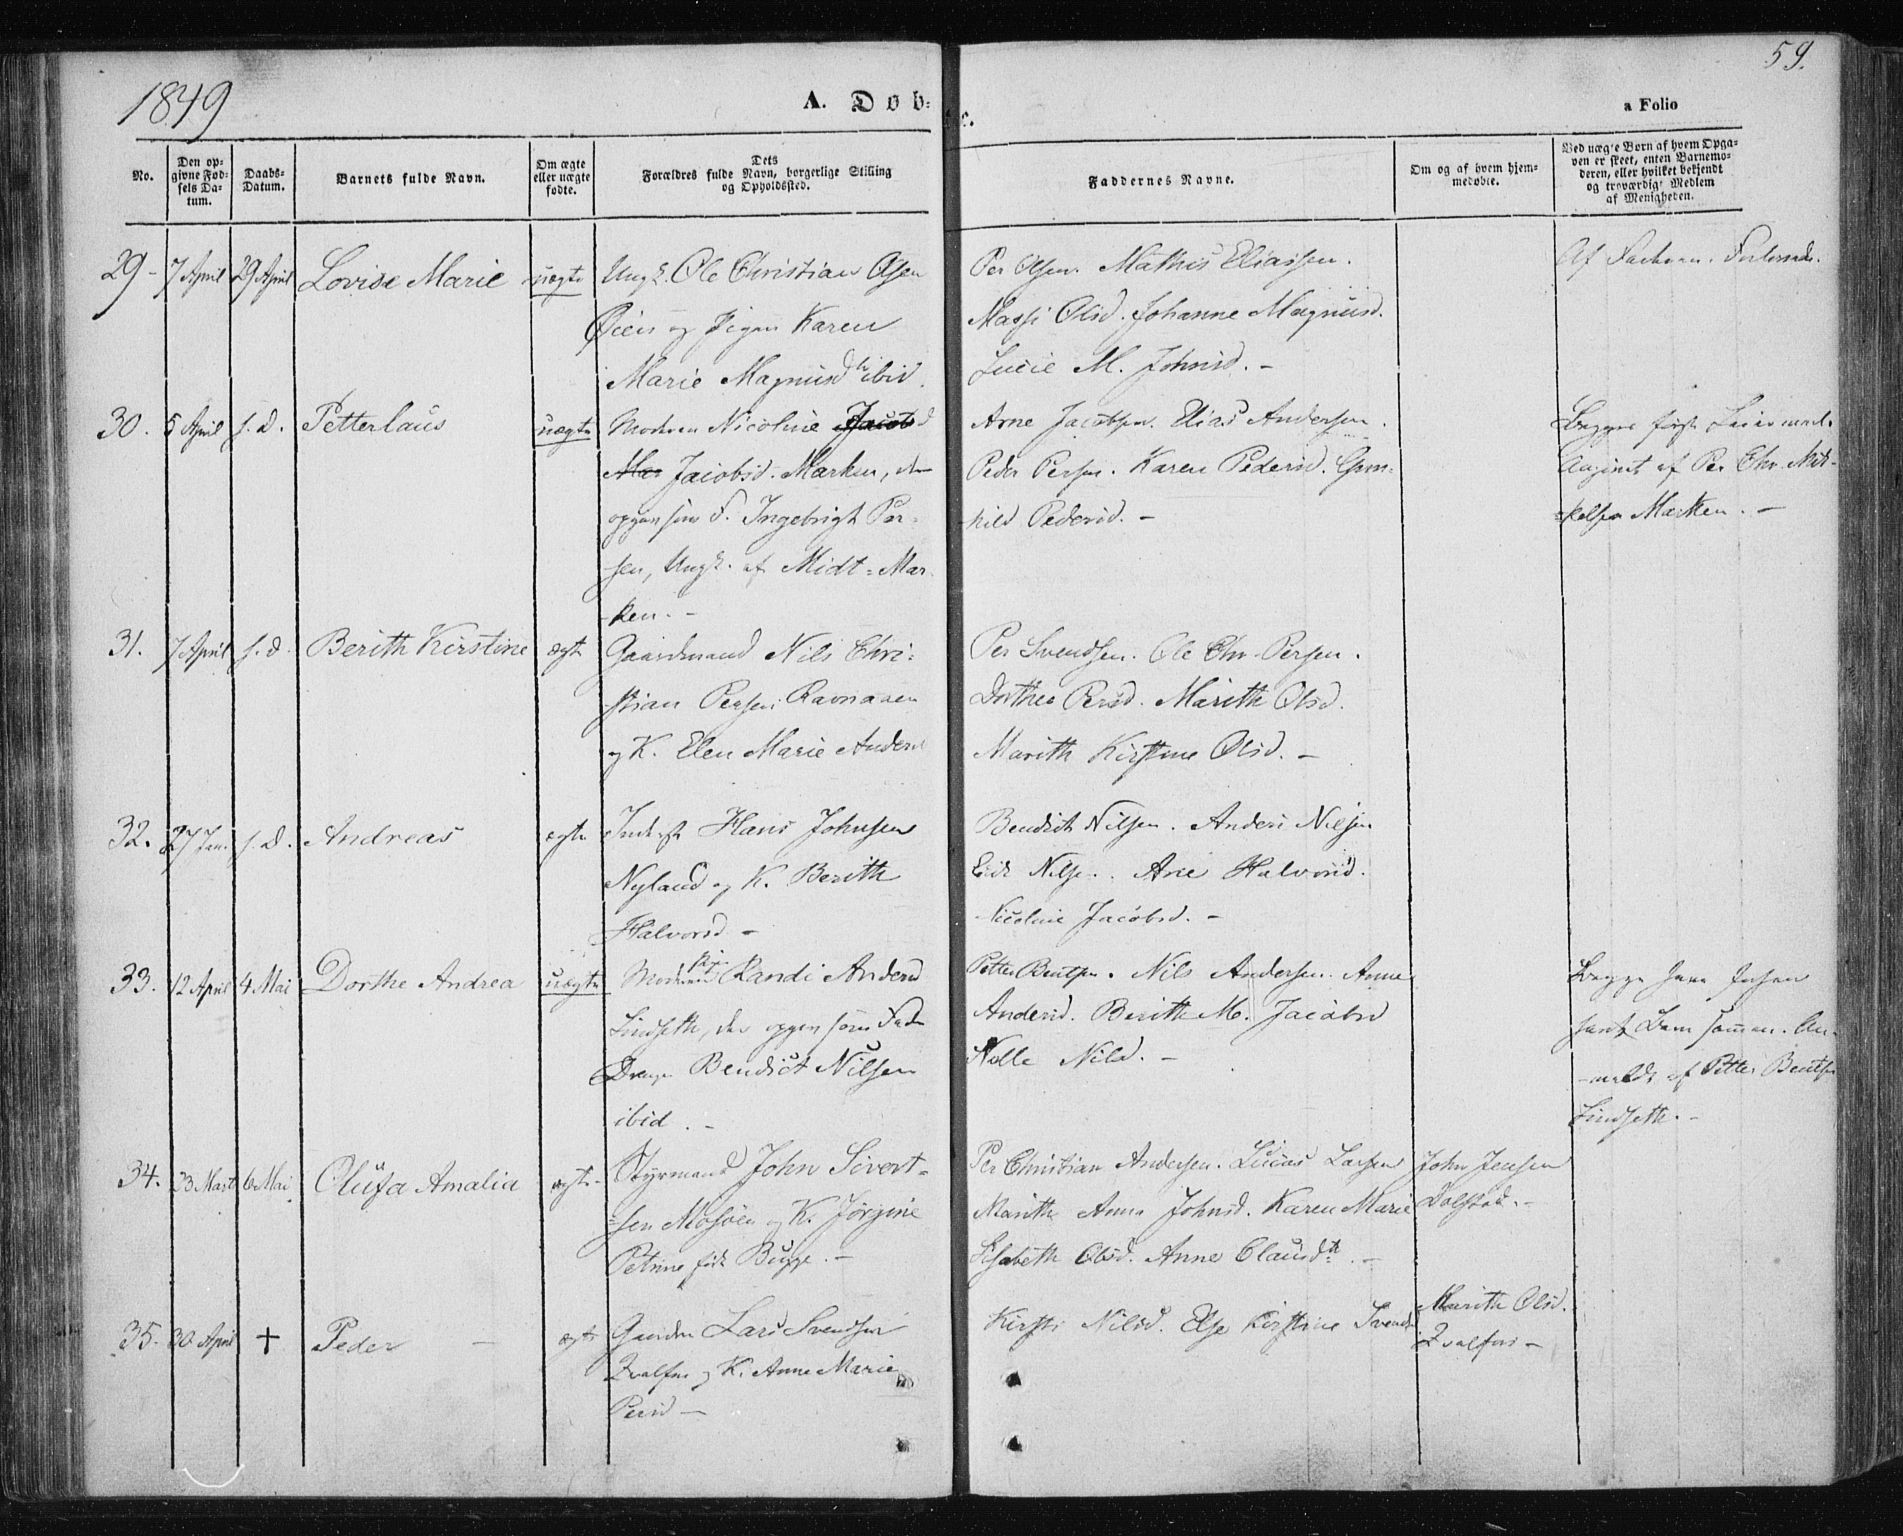 1849
59.
A. Døb-
te.
a Folio
No.
Den op-
givne Fød-
sels Da-
tum.
Daabs-
Datum.
Barnets fulde Navn.
Om ægte
eller uægte
fødte.
Dets
Forældres fulde Navn, borgerlige Stilling
og Opholdssted.
Faddernes Navne.
Om og af hvem hjem-
medøbte.
Ved uægte Børn af hvem Opga-
ven er skeet, enten Barnemo-
deren, eller hvilket bekjendt
og troværdigt Medlem
af Menigheden.
29- 7 April 29 April Lovise Marie uægte
Ungk. Ole Christian Olsen
Øien og Pigen Karen
Marie Magnusd ibid.
Per Olsen. Mathis Eliassen.
Massi Olsd. Johanne Magnusd.
Lucie M. Johnsd. -
Af Faderen.
30. 5 April s. D. Petterlaus uægte
Moderen Nicoline Jacobsd
Mar Jacobsd. Marken, der
opgav som F. Ingebrigt Per-
sen, Ungk. af Midt-Mar-
ken. -
Arne Jacobsen. Elias Andersen.
Peder Persen. Karen Pedersd. Gun-
hild Pedersd. -
Begges første Leiermaal.
Angivet af Per Chr. Mik-
kelsen Marken. -
31. 7 April s. d. Berith Kirstine ægte
Gaardmand Nils Chri-
stian Persen Ravnaaen
og K. Elen Marie Andersd
Per Svendsen. Ole Chr. Persen.
Dorthea Persd. Marith Olsd.
Marith Kirstine Olsd. -
32. 27 Jan. s. D. Andreas ægte
Inderst Hans Johnsen
Nyland og K. Berith
Halvorsd -
Bendict Nilsen. Anders Nilsen
Erik Nilsen. Ane Halvorsd.
Nicoline Jacobsd. -
33. 12 April 4 Mai Dorthe Andrea uægte
Moderen Pig. Randi Andersd
Lindseth, der opgav som Fader
Dreng Bendict Nilsen
ibid. -
Petter Bentsen. Nils Andersen. Anne
Andersd. Berith M. Jacobsd
Nolle Nilsd. -
Begge have forhen
havt Barn sammen. An-
meldt af Petter Bentsen
Lindseth. -
34. 23 Marts 6 Mai Olufa Amalia ægte
Styrmand John Sivert-
sen Mosøen og K. Jørgine
Petrine født Bugge. -
Per Christian Andersen. Lucas Larsen
Marith Anna Johnsd. Karen Marie
Elisabeth Olsd. Anne Clausdtr. -
John Jensen
Dolstad. -
35. 30 April + Peder - ægte
Gaardm Lars Svendsen
Kvalfors og K. Anne Marie
Persd -
Kirsti Nilsd. Else Kirstine Svendsd
Marith Olsd.
Kvalfors -